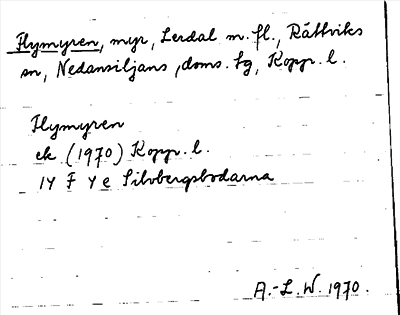 Flymyren, myr, Lerdal m. fl., Rättviks
sn, Nedansiljans, doms. fg, Kopp. l.
Flymyren
ek (1970) Kopp. l.
14 F 4 e Silvbergsbodarna
A.-L. W. 1970.